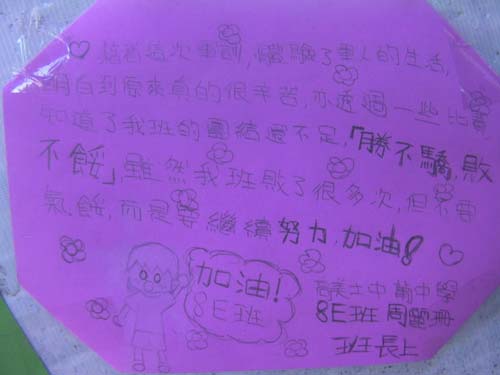 藉着這次軍訓,體驗了軍人的生活,
明白到原來真的很辛苦,亦透過一些比賽
知道了我班的團結還不足,「勝不驕,敗
不餒」,雖然我班敗了很多次,但不要
氣餒,而是要繼續努力,加油!
加油!
8E班
中葡中學
8E班 周
班長上